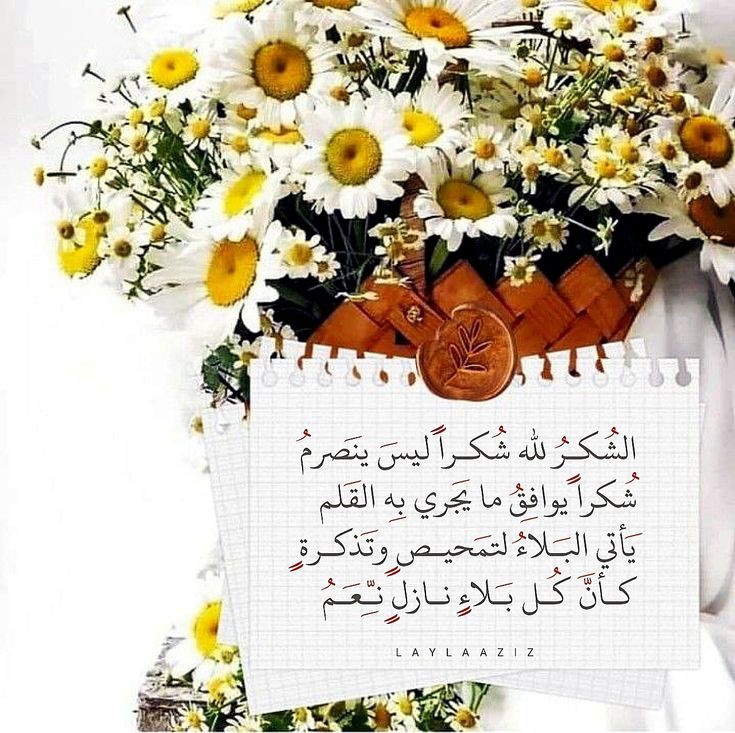 الشُكـرُ لله شُكـراً ليسَ ينَصرمُ
شُكراً يوافِقُ ما يَجري بِه القَلم
يَأتي البَـلاءُ لتمَحيـصٍ وتَذكـرةٍ
كـأنَّ كُـل بَـلاءٍ نـازلٍ نِّـعَـمُ
LAYLAAZIZ